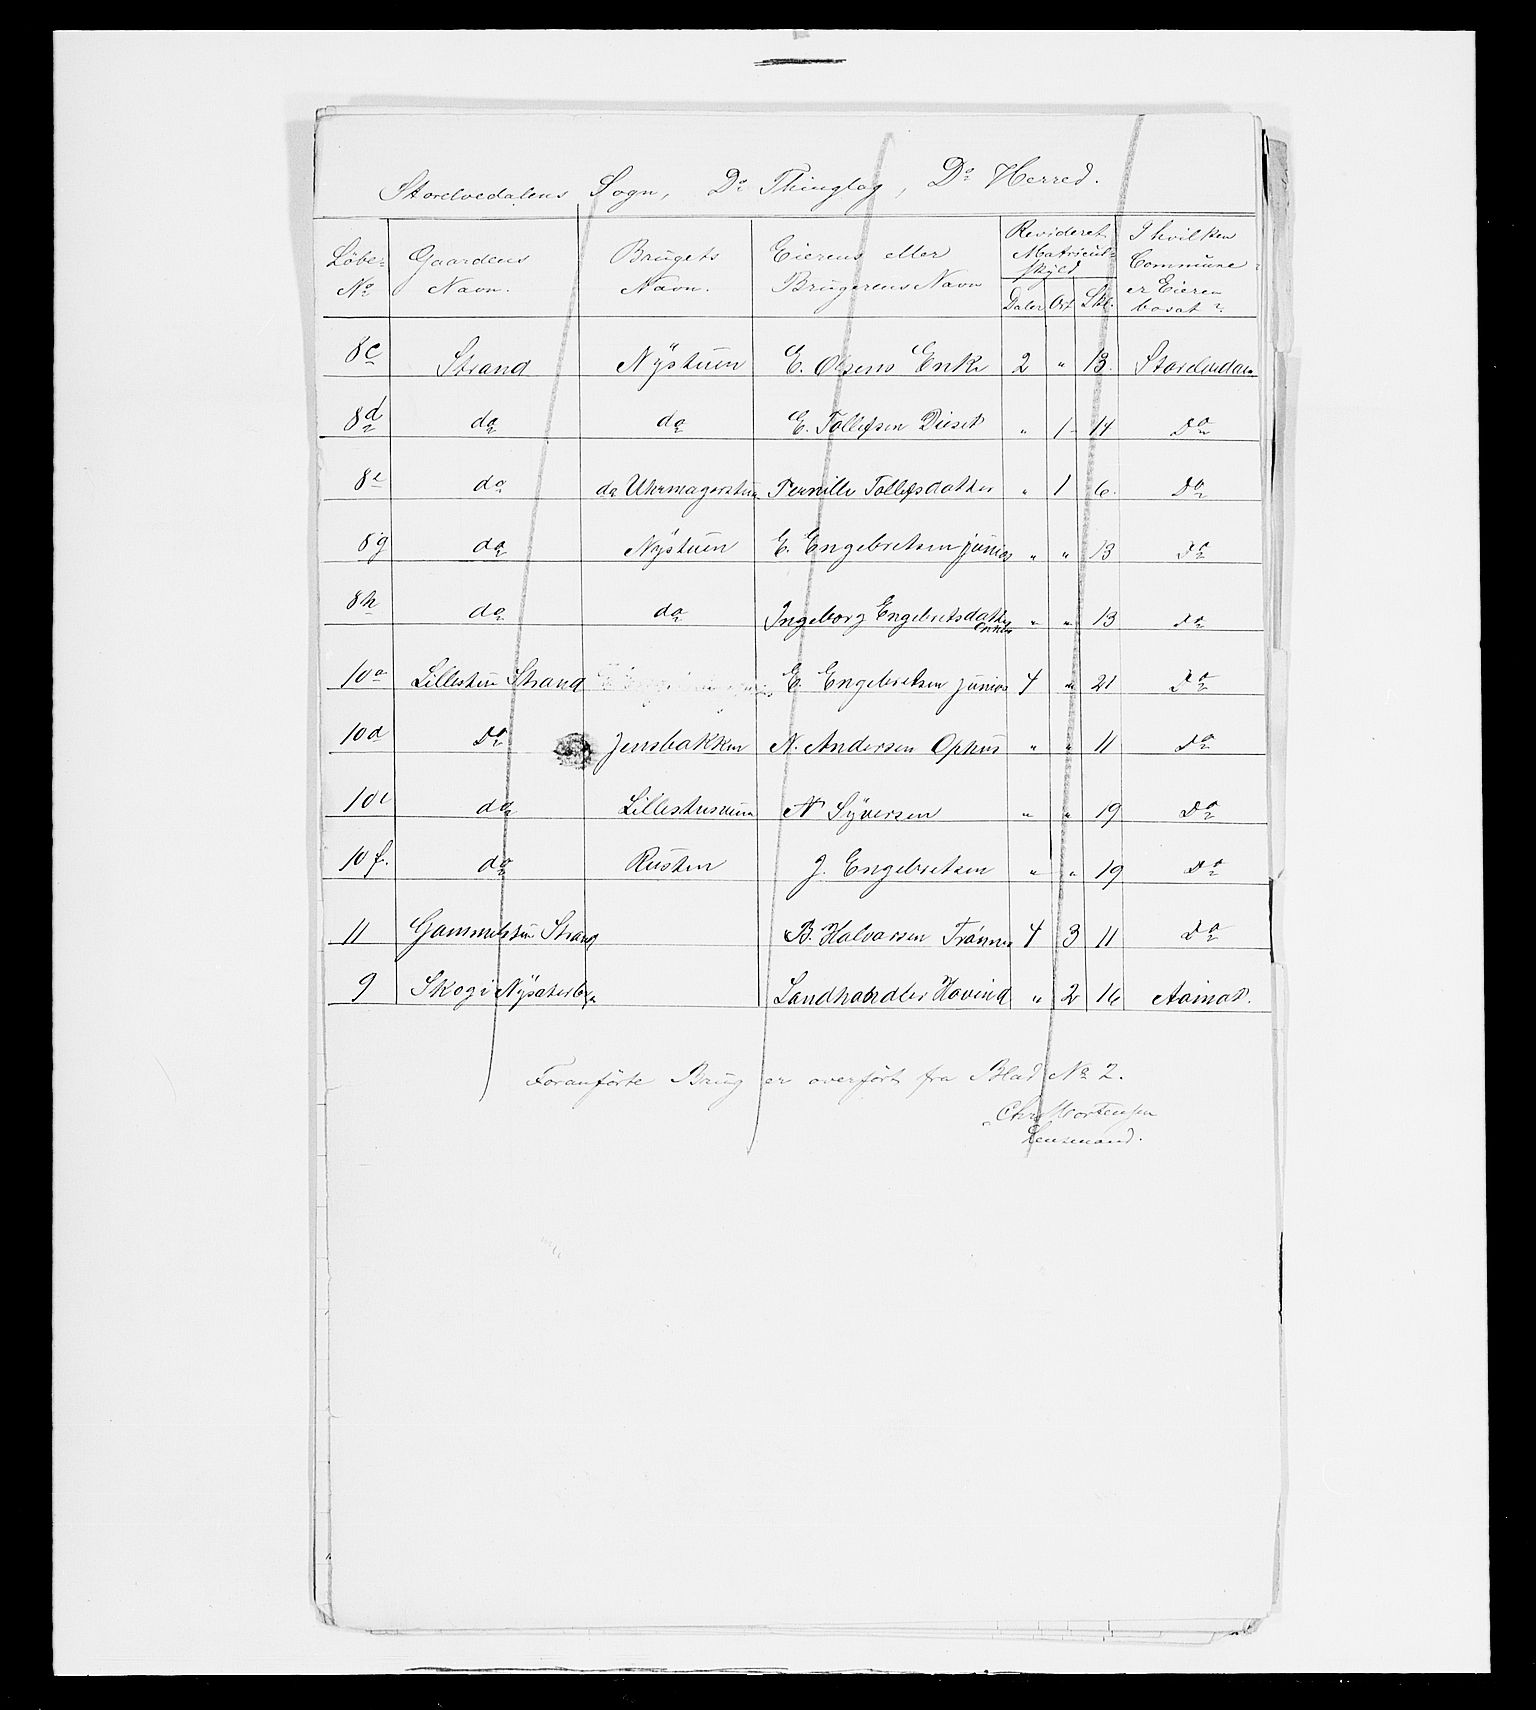 Storelvedalens Sogn, Do Thinglag, Do Herred.
Löbe- No Gaardens Navn. Brugets Navn. Eierens eller Brugerens Navn Revideret Matricul- skyld Daler Ort Skl. I hvilken Commune er Eieren bosat?
8c Strand Nÿstuen E. Olsens Enke 2 " 13. Storelvedalen
8d do do E. Tollefsen Dieset " 1 14 Do
8e do do Uhrmagerstuen Pernille Tollefsdatter " 1 6. Do
8g do Nÿstuen E. Engebretsen junior " " 13 Do
8h do do Ingeborg Engebretsdatter Enke " " 13 Do
10a Lillestu Strand E. Engebretsen junior 4 " 21 Do
10d Do Jensbakken N. Andersen Ophus " " 11 Do
10e do Lillestusveen N Sÿversen " " 19 Do
10f. do Rusten J. Engebretsen " " 19 Do
11 Gammelstu Strand B. Halvorsen Trönnes 4 3 11 Do
9 Skog i Nÿsæterberg Landhandler Hovind " 2 16 Aamot.
Foranförte Brug er overfört fra Blad No 2.
Chr Mortensen
Lensmand.